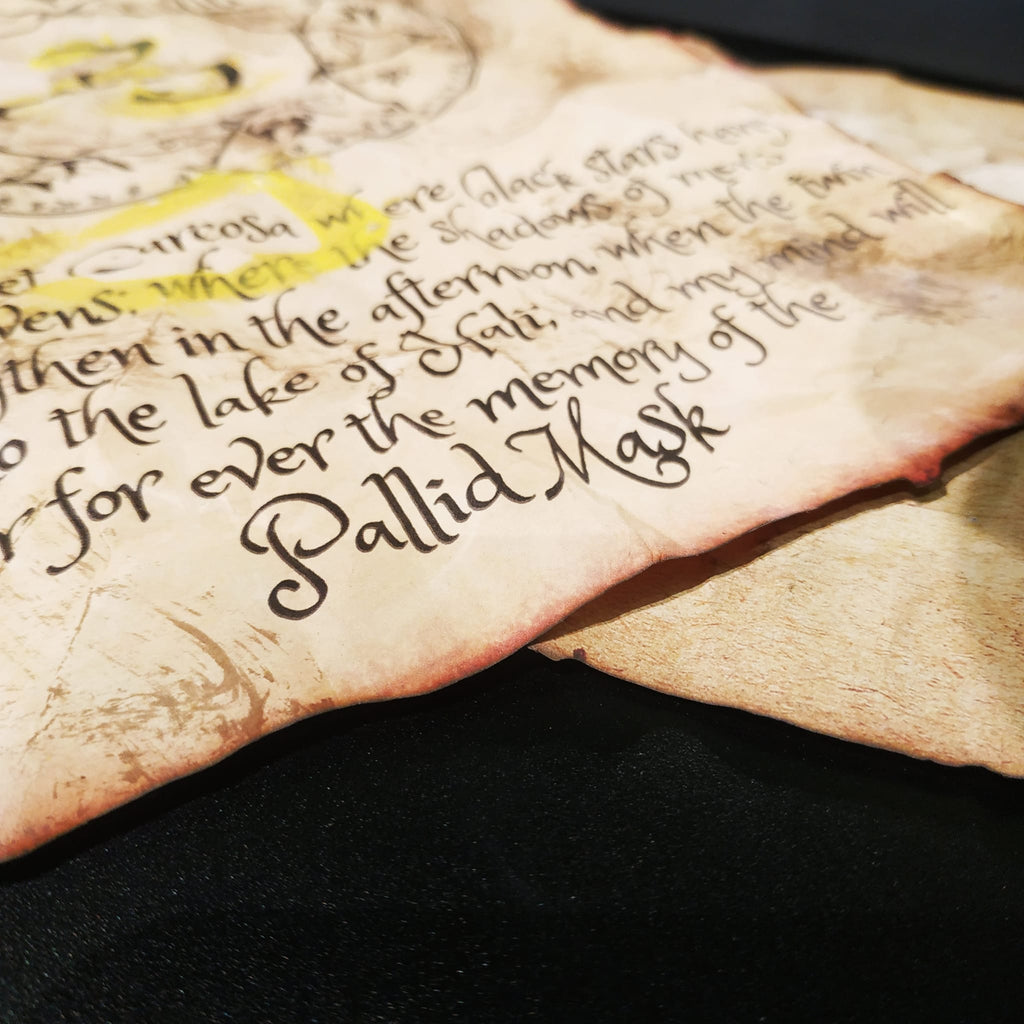 Carcosa where black stars hang
where the shadows of men's
then in the afternoon, when the twin
the lake of Hali; and my mind will
for ever the memory of the
Pallid Mask